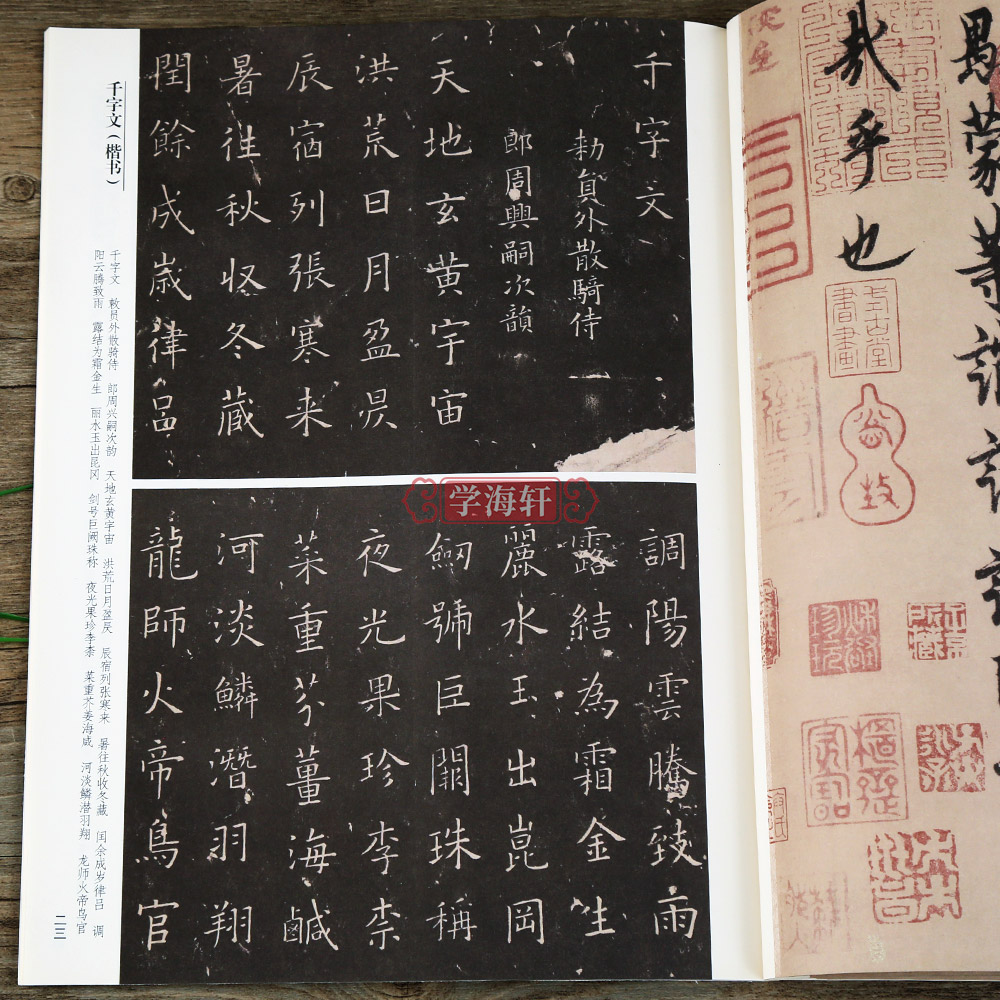 愚蒙等誚
哉乎也
千字文
勑貟外散騎侍
郎周興嗣次韻
天地玄黄宇宙
洪荒日月盈昃
辰宿列張寒来
暑往秋收冬藏
閏餘成歲律吕
調陽雲騰致雨
露結為霜金生
麗水玉出崑岡
劒號巨闕珠稱
夜光果珍李柰
菜重芥薑海鹹
河淡鱗潛羽翔
龍師火帝鳥官
学海轩
千字文（楷书）
千字文　敕员外散骑侍　郎周兴嗣次韵　天地玄黄宇宙　洪荒日月盈昃　辰宿列张寒来　暑往秋收冬藏　闰余成岁律吕　调
阳云腾致雨　露结为霜金生　丽水玉出昆冈　剑号巨阙珠称　夜光果珍李柰　菜重芥姜海咸　河淡鳞潜羽翔　龙师火帝鸟官
二三